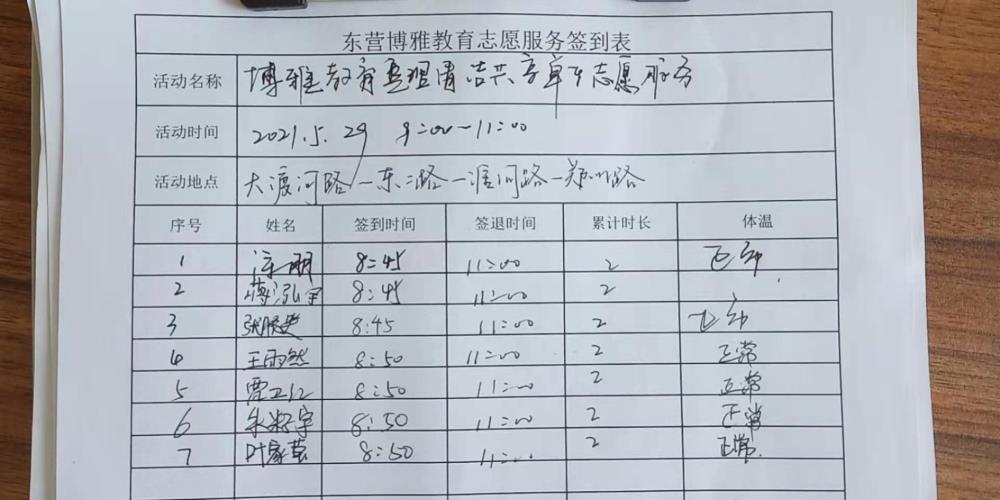 东营博雅教育志愿服务签到表
活动名称 博雅教育整理清洁共享单车志愿服务
活动时间 2021.5.29 9:00—11:00
活动地点 大渡河路—东二路—淮河路—郑州路
序号 姓名 签到时间 签退时间 累计时长 体温
1 8:45 11:00 2 正常
2 蒋泓宇 8:45 11:00 2
3 8:45 11:00 2 正常
4 王雨然 8:50 11:00 2 正常
5 贾卫红 8:50 11:00 2 正常
6 8:50 11:00 2 正常
7 叶家莹 8:50 11:00 2 正常.